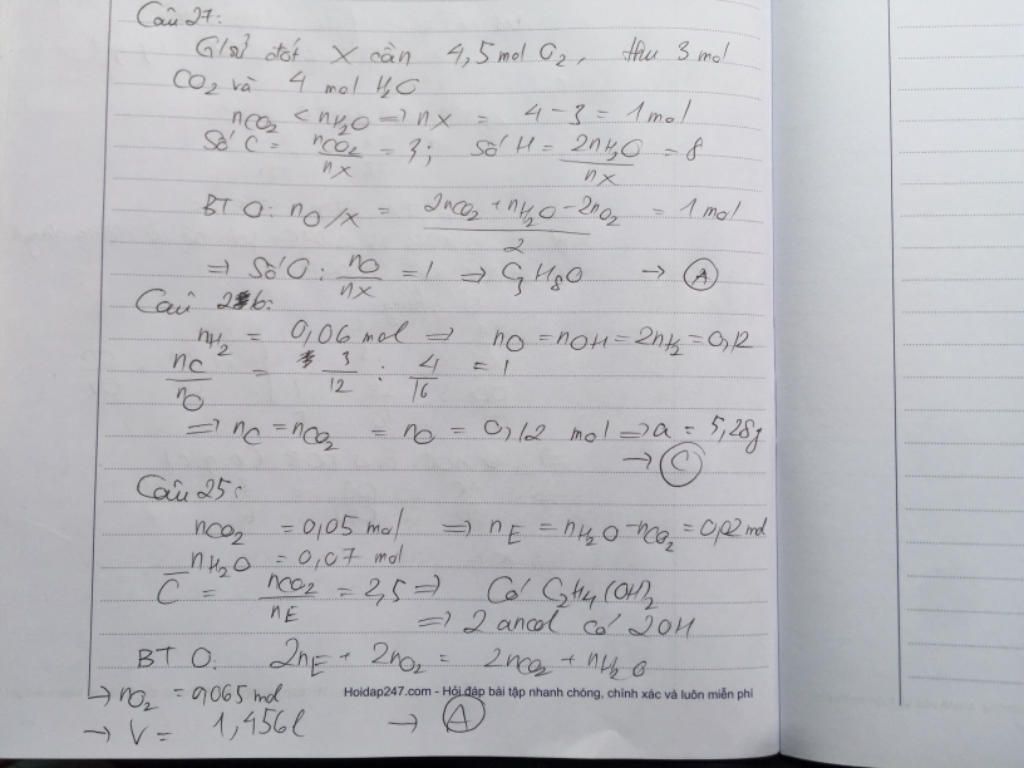 Câu 27:
G/sử đốt X cần 4,5 mol O2, thu 3 mol
CO2 và 4 mol H2O
nCO2 < nH2O => nX = 4 - 3 = 1 mol
Số C = nCO2/nX = 3; Số H = 2nH2O/nX = 8
BT O: nO/X = (2nCO2 + nH2O - 2nO2)/2 = 1 mol
=> Số O: nO/nX = 1 => C3H8O → (A)
Câu 26:
nH2 = 0,06 mol => nO = nOH = 2nH2 = 0,12
nC/nO = 3/12 : 4/16 = 1
=> nC = nCO2 = nO = 0,12 mol => a = 5,28g
→ (C)
Câu 25:
nCO2 = 0,05 mol => nE = nH2O - nCO2 = 0,02 mol
nH2O = 0,07 mol
C̅ = nCO2/nE = 2,5 => Có C2H4(OH)2
=> 2 ancol có 2OH
BT O: 2nE + 2nO2 = 2nCO2 + nH2O
↳ nO2 = 0,065 mol
Hoidap247.com - Hỏi đáp bài tập nhanh chóng, chính xác và luôn miễn phí
→ V = 1,456l → (A)